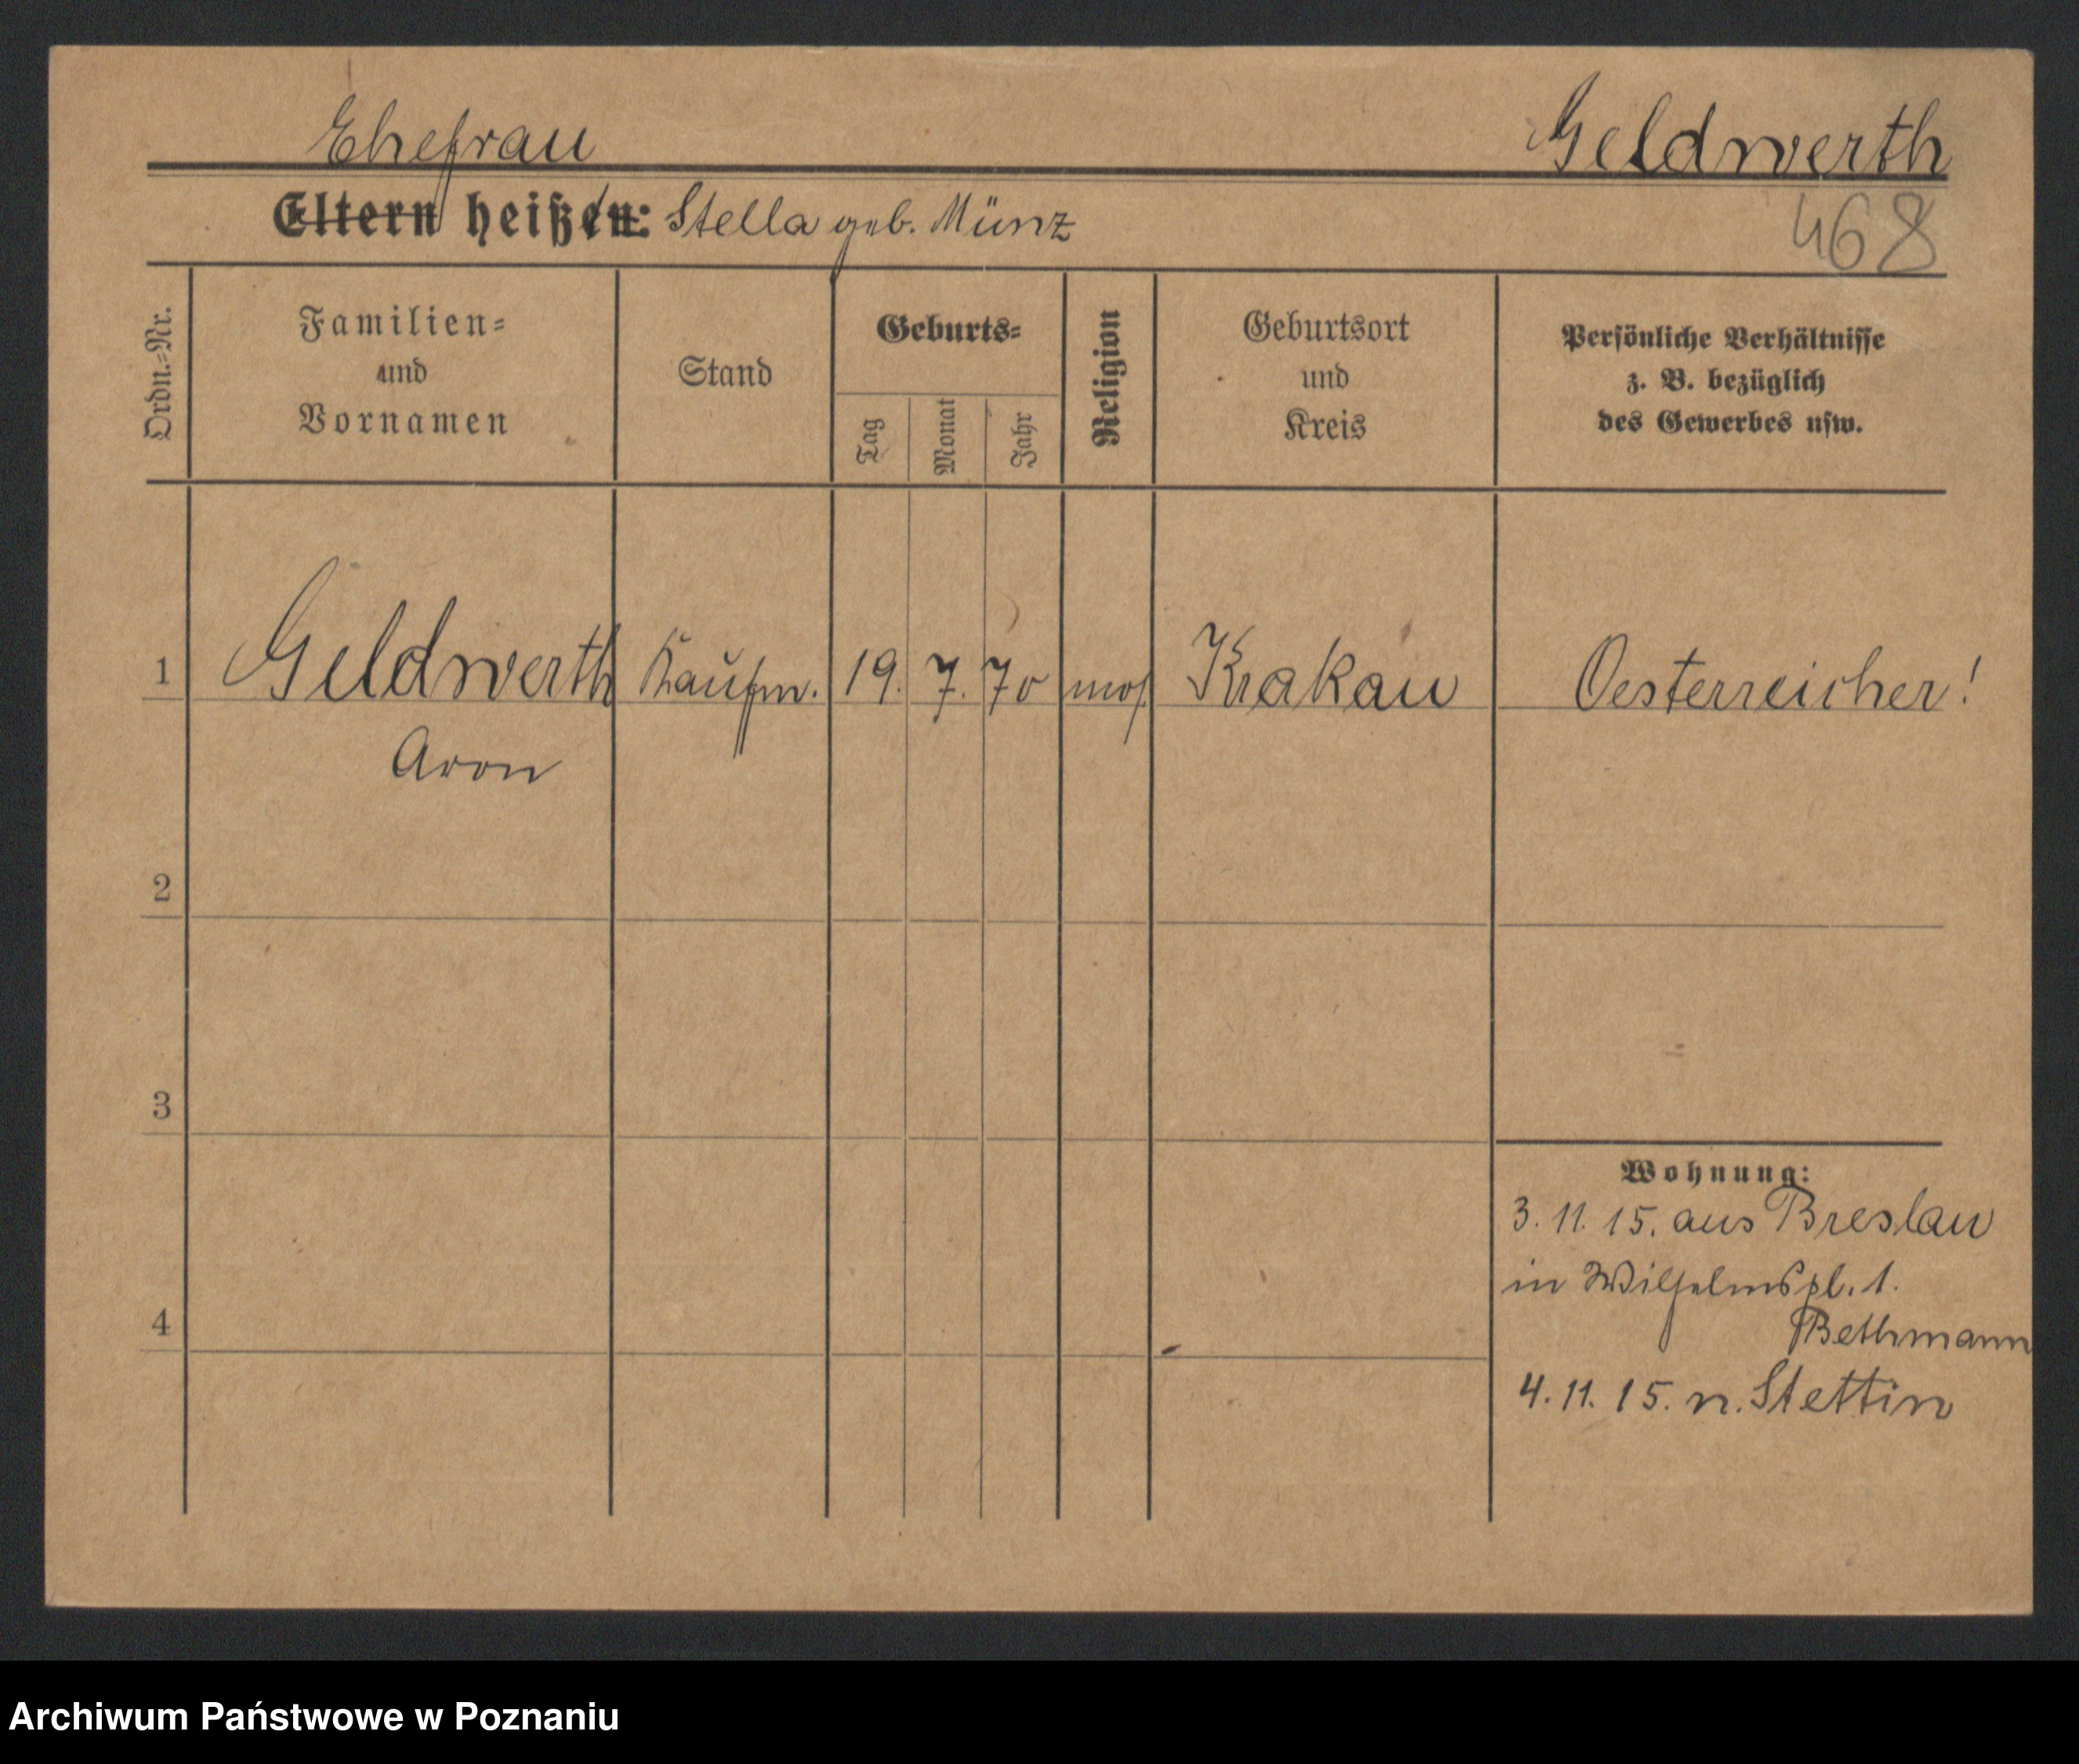 Ehefrau
Geldwerth
Eltern heißen: Stella geb. Münz
468
Ordn.=Nr.
Familien=
und
Vornamen
Stand
Geburts=
Tag
Monat
Jahr
Religion
Geburtsort
und
Kreis
Persönliche Verhältnisse
z. B. bezüglich
des Gewerbes usw.
1 Geldwerth Kaufm. 19. 7. 70 mos. Krakau Oesterreicher!
Aron
2
3
Wohnung:
3. 11. 15. aus Breslau
in Wilhelmspl. 1.
Bethmann
4
4. 11. 15. n. Stettin
Archiwum Państwowe w Poznaniu